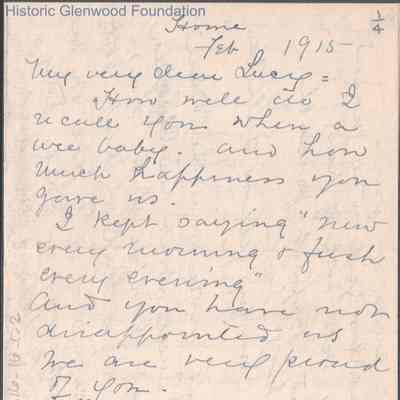 Historic Glenwood Foundation
Home
Feb 1915
1/4
My very dear Lucy =
How well do I
recall you when a
wee baby. and how
much happiness you
gave us.
I kept saying "new
every morning & fresh
every evening"
And you have not
disappointed us
We are very proud
of you.